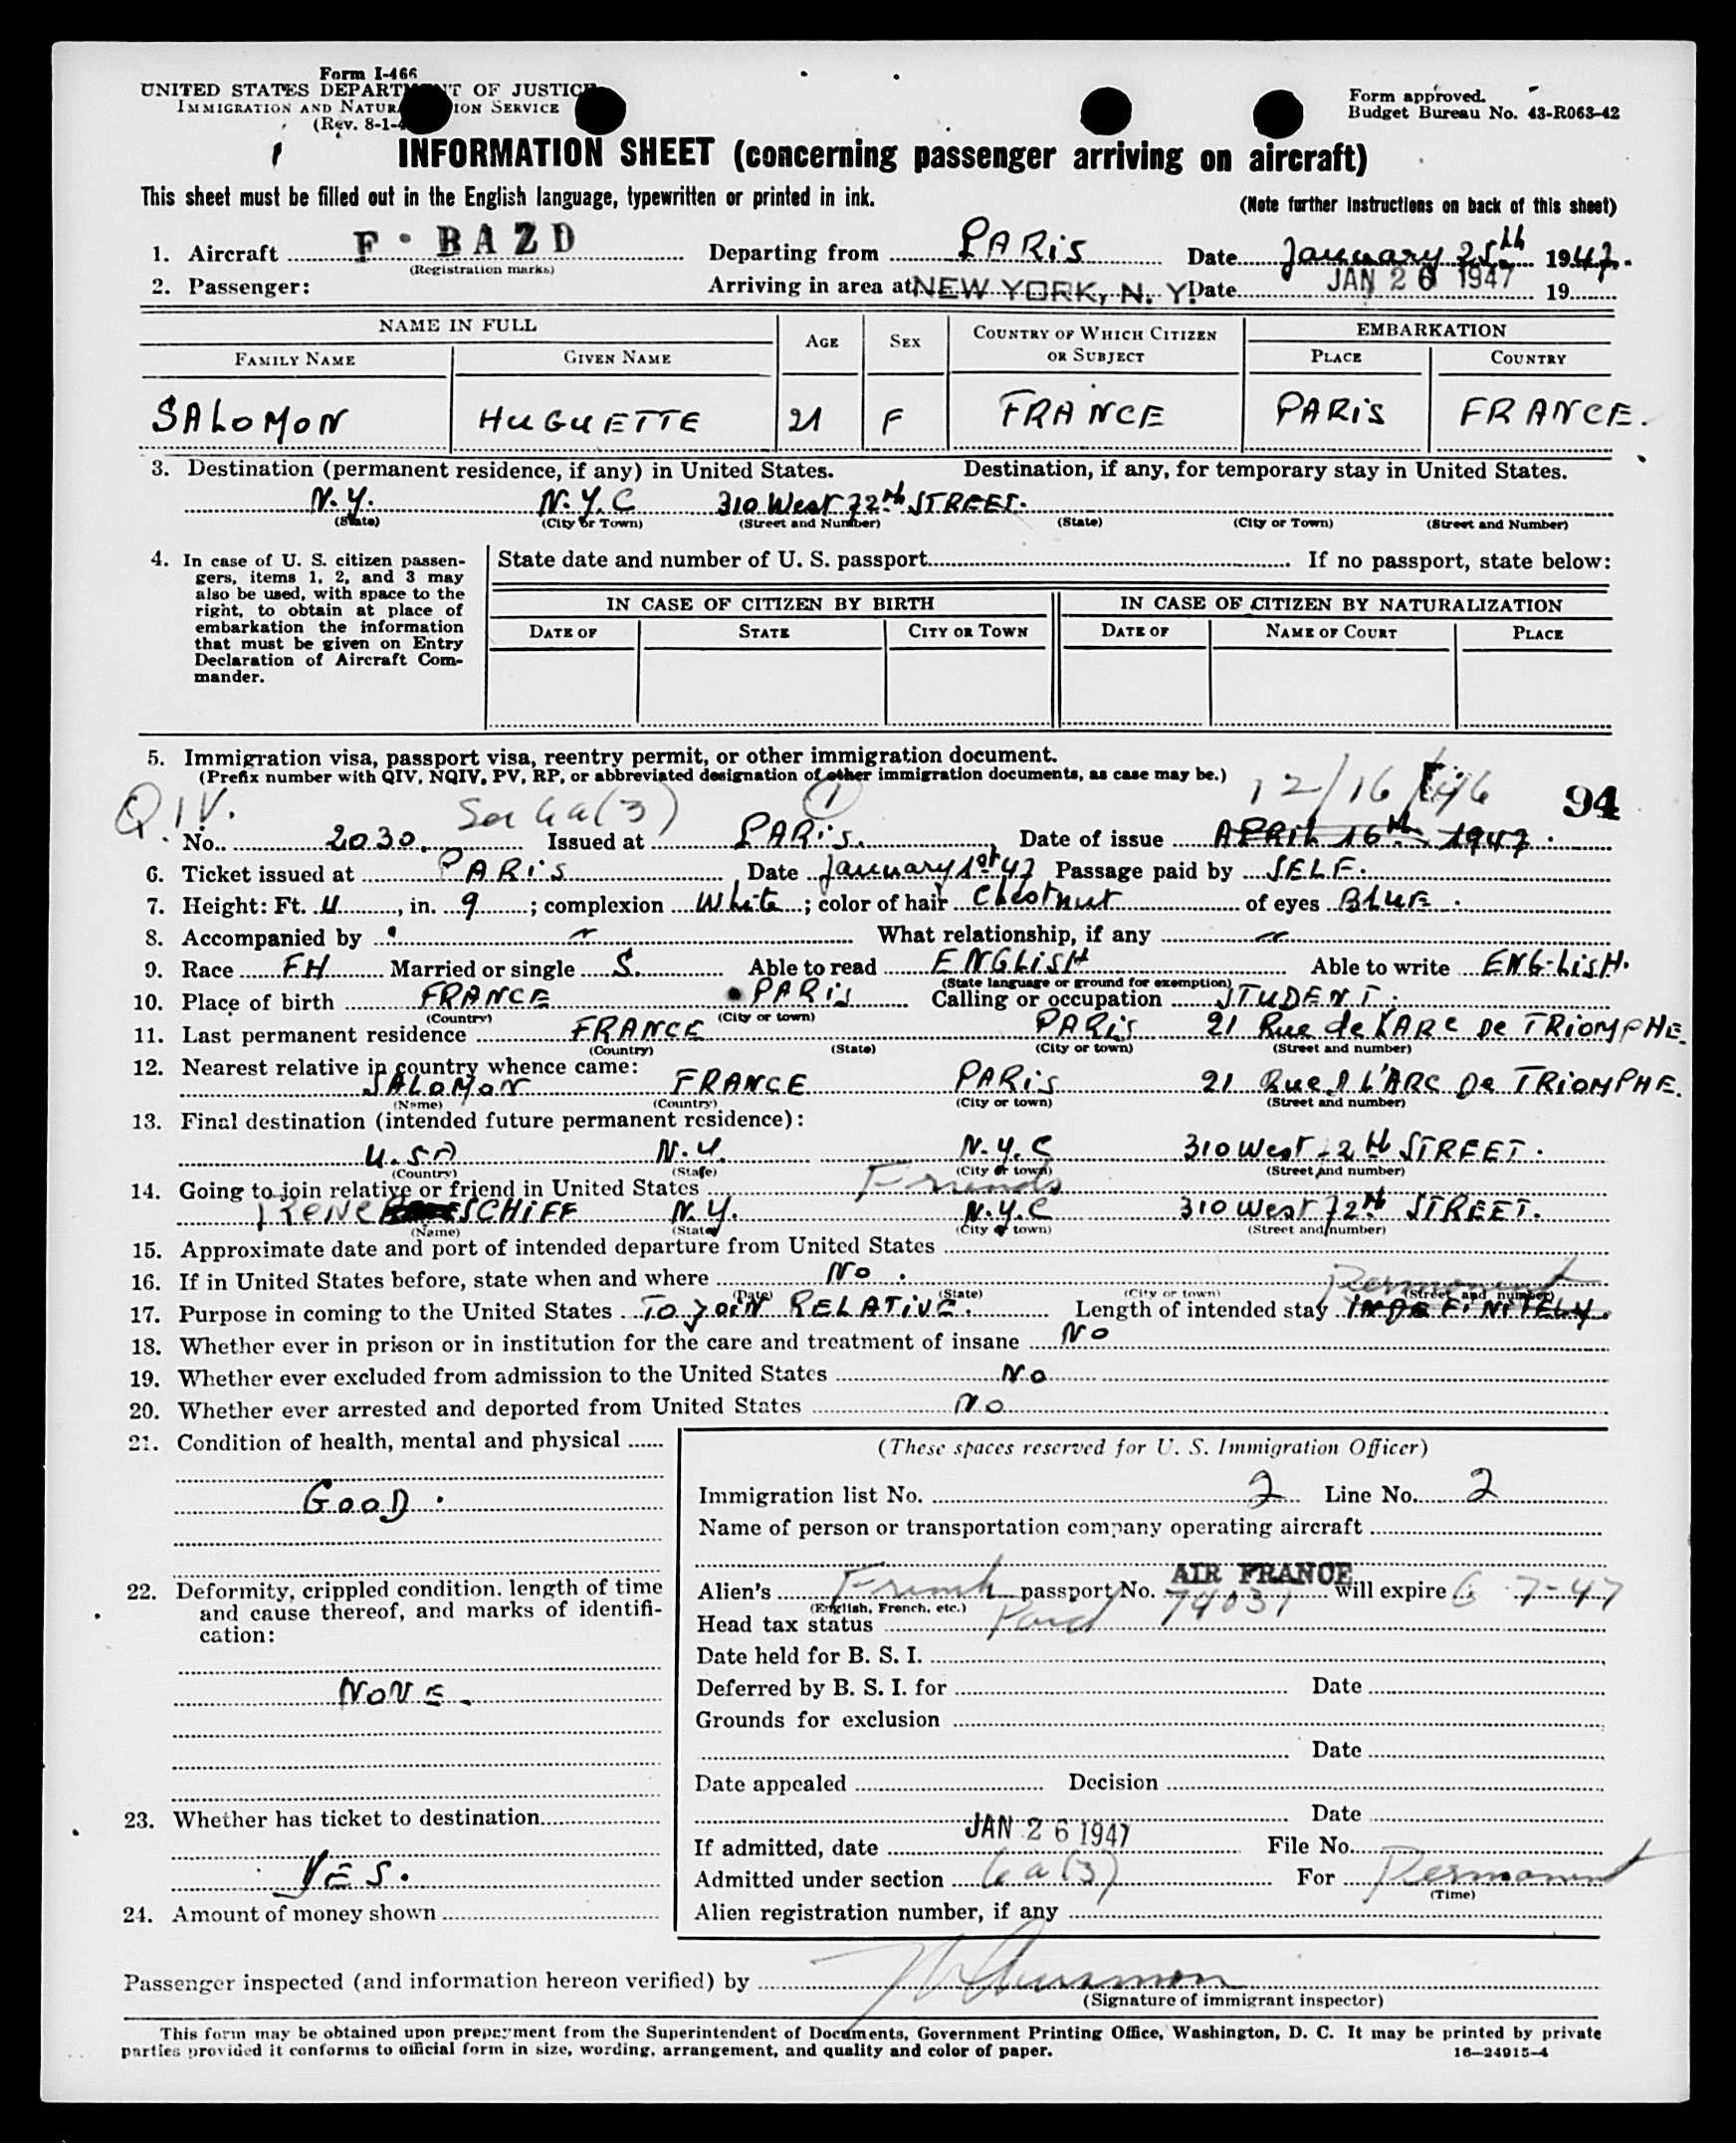 Form I-466
UNITED STATES DEPARTMENT OF JUSTICE
IMMIGRATION AND NATURALIZATION SERVICE
(Rev. 8-1-4
Form approved.
Budget Bureau No. 43-R063-42
INFORMATION SHEET (concerning passenger arriving on aircraft)
This sheet must be filled out in the English language, typewritten or printed in ink.
(Note further instructions on back of this sheet)
1. Aircraft F • BAZD Departing from PARiS Date January 25th 1947.
(Registration marks)
2. Passenger: Arriving in area at NEW YORK, N. Y. Date JAN 26 1947 19
NAME IN FULL AGE SEX COUNTRY OF WHICH CITIZEN OR SUBJECT EMBARKATION
FAMILY NAME GIVEN NAME PLACE COUNTRY
SALOMON HUGUETTE 21 F FRANCE PARiS FRANCE.
3. Destination (permanent residence, if any) in United States. Destination, if any, for temporary stay in United States.
N.Y. N.Y.C 310 West 72th STREET.
(State) (City or Town) (Street and Number) (State) (City or Town) (Street and Number)
4. In case of U. S. citizen passen-
gers, items 1, 2, and 3 may
also be used, with space to the
right, to obtain at place of
embarkation the information
that must be given on Entry
Declaration of Aircraft Com-
mander.
State date and number of U. S. passport If no passport, state below:
IN CASE OF CITIZEN BY BIRTH IN CASE OF CITIZEN BY NATURALIZATION
DATE OF STATE CITY OR TOWN DATE OF NAME OF COURT PLACE
5. Immigration visa, passport visa, reentry permit, or other immigration document.
(Prefix number with QIV, NQIV, PV, RP, or abbreviated designation of other immigration documents, as case may be.)
QIV. 6a(3) 1 12/16/46 94
No. 2030. Issued at PARiS. Date of issue APRIL 16th 1947.
6. Ticket issued at PARiS Date January 1st 47 Passage paid by SELF.
7. Height: Ft. 4, in. 9; complexion White; color of hair Chestnut of eyes BLUE.
8. Accompanied by What relationship, if any
9. Race FH Married or single S. Able to read ENGLISH Able to write ENGLISH.
(State language or ground for exemption)
10. Place of birth FRANCE PARiS Calling or occupation STUDENT.
(Country) (City or town)
11. Last permanent residence FRANCE PARiS 21 Rue de L'ARC De TRiOMPHE.
(Country) (State) (City or town) (Street and number)
12. Nearest relative in country whence came:
SALOMON FRANCE PARiS 21 Rue d L'ARC De TRiOMPHE.
(Name) (Country) (City or town) (Street and number)
13. Final destination (intended future permanent residence):
U.SA N.Y. N.Y.C 310 West 72th STREET.
(Country) (State) (City or town) (Street and number)
14. Going to join relative or friend in United States Friends
IRENE SCHiFF N.Y. N.Y.C 310 West 72th STREET.
(Name) (State) (City or town) (Street and number)
15. Approximate date and port of intended departure from United States
16. If in United States before, state when and where No. Permanent
(Date) (State) (City or town) (Street and number)
17. Purpose in coming to the United States TO JOiN RELATiVE. Length of intended stay INDEFiNiTELY.
18. Whether ever in prison or in institution for the care and treatment of insane No
19. Whether ever excluded from admission to the United States No
20. Whether ever arrested and deported from United States No
21. Condition of health, mental and physical
GooD.
22. Deformity, crippled condition. length of time
and cause thereof, and marks of identifi-
cation:
NoNE.
23. Whether has ticket to destination
YES.
24. Amount of money shown
(These spaces reserved for U. S. Immigration Officer)
Immigration list No. 2 Line No. 2
Name of person or transportation company operating aircraft
AIR FRANCE
Alien's French passport No. 74031 will expire 6-7-47
(English, French, etc.)
Head tax status Paid
Date held for B. S. I.
Deferred by B. S. I. for Date
Grounds for exclusion
Date
Date appealed Decision
Date
If admitted, date JAN 26 1947 File No.
Admitted under section 6a(3) For Permanent
(Time)
Alien registration number, if any
Passenger inspected (and information hereon verified) by
(Signature of immigrant inspector)
This form may be obtained upon prepayment from the Superintendent of Documents, Government Printing Office, Washington, D. C. It may be printed by private
parties provided it conforms to official form in size, wording, arrangement, and quality and color of paper.
16—24915-4